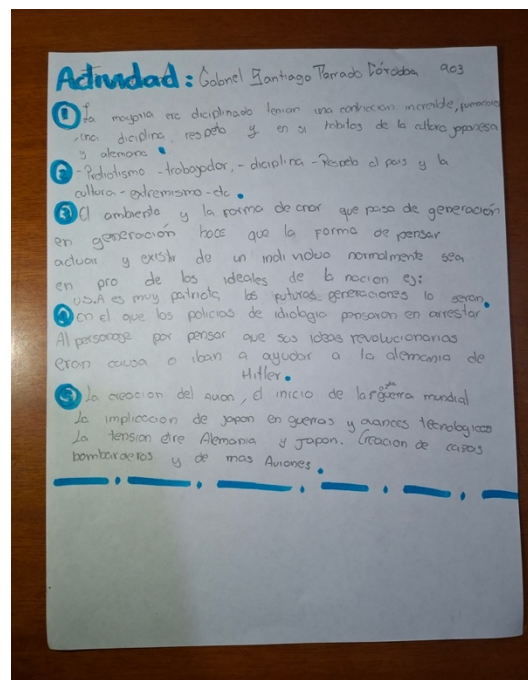 Actividad: Gabriel Santiago Parrado Córdoba 903
1 La mayoria era diciplinado tenian una conviccion increible,
una diciplina, respeto y en si habitos de la cultura japonesa
y alemana.
2 - Patriotismo - trabajador, - diciplina - Respeto al pais y la
cultura - extremismo - etc.
3 El ambiente y la forma de criar que pasa de generación
en generación hace que la forma de pensar
actuar y existir de un individuo normalmente sea
en pro de los ideales de la nacion ej:
U.S.A es muy patriota, las futuras generaciones lo seran.
4 en el que los policias de idiologia pensaron en arrestar
Al personaje por pensar que sus ideas revolucionarias
eran causa o iban a ayudar a la alemania de
Hitler.
5 La creacion del avion, el inicio de la guerra mundial
La implicacion de japon en guerras y avances tecnologicos
La tension etre Alemania y Japon. Creacion de cazas
bombarderos y de mas Aviones.